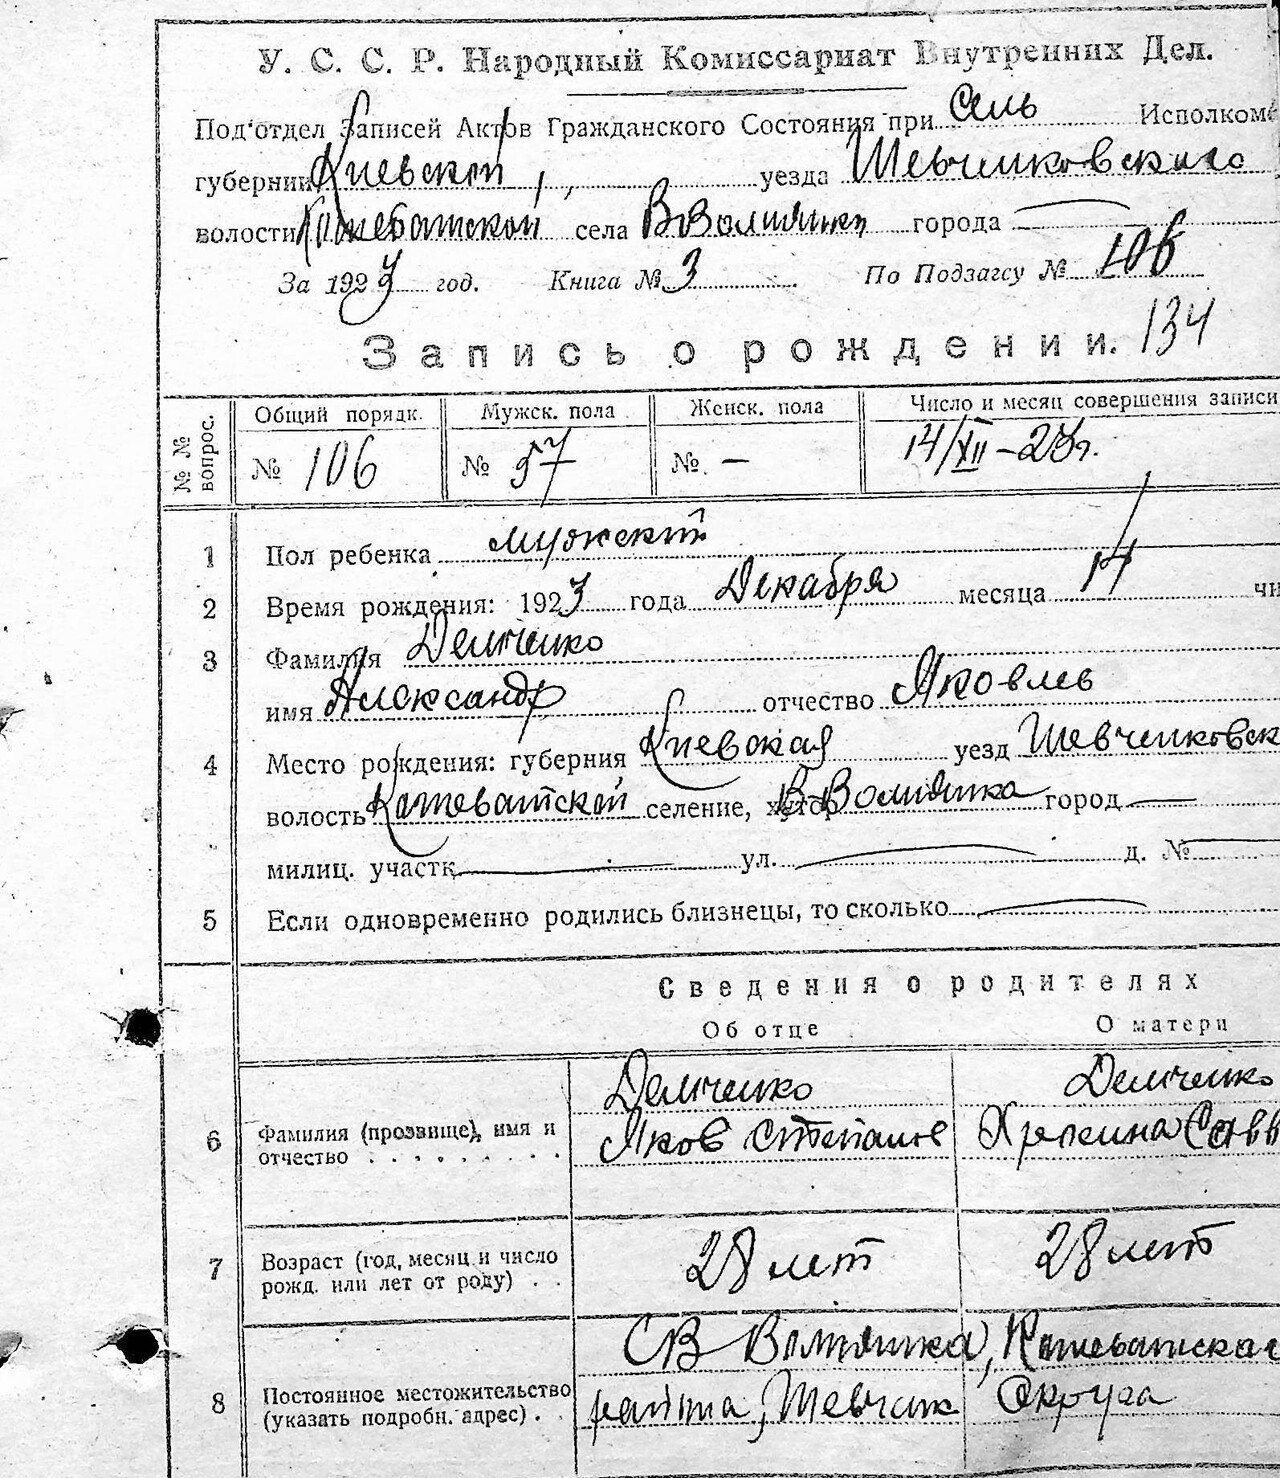 У. С. С. Р. Народный Комиссариат Внутренних Дел.
Под'отдел Записей Актов Гражданского Состояния при Сель Исполкоме
губернии Киевской, уезда Шевченковского
волости села города —
За 1923 год. Книга № 3 По Подзагсу № 106
Запись о рождении. 134
№№ вопрос. Общий порядк. Мужск. пола Женск. пола Число и месяц совершения записи
№ 106 № 57 № – 14/XII – 23г.
1 Пол ребенка мужский
2 Время рождения: 1923 года Декабря месяца 14 чи
3 Фамилия Демченко
имя Александр отчество Яковлев
4 Место рождения: губерния Киевская уезд Шевченковск
волость селение, хутор город —
милиц. участк. — ул. — д. № —
5 Если одновременно родились близнецы, то сколько —
Сведения о родителях
Об отце О матери
Демченко Демченко
6 Фамилия (прозвище), имя и отчество . . . . . . . . . Яков Степанов Савв
7 Возраст (год, месяц и число рожд. или лет от роду) . . 28 лет 28 лет
С В
8 Постоянное местожительство (указать подробн. адрес) . района, Шевченк Округа